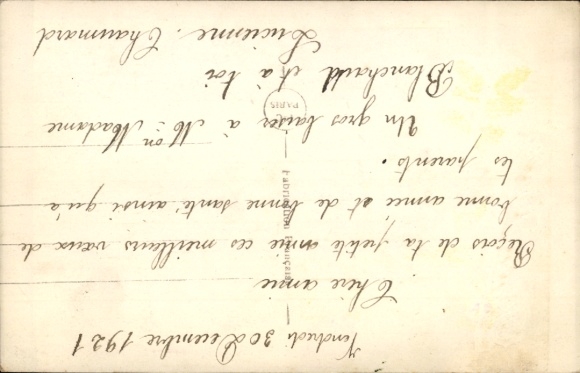 Vendredi 30 Décembre 1921
Chère amie
Reçois de ta petite amie ces meilleurs vœux de
bonne année et de bonne santé ainsi qu'à
tes parents.
Un gros baiser à Mon Madame
Blanchard et à toi
Lucienne. Chaumard
Fabrication Française
PARIS